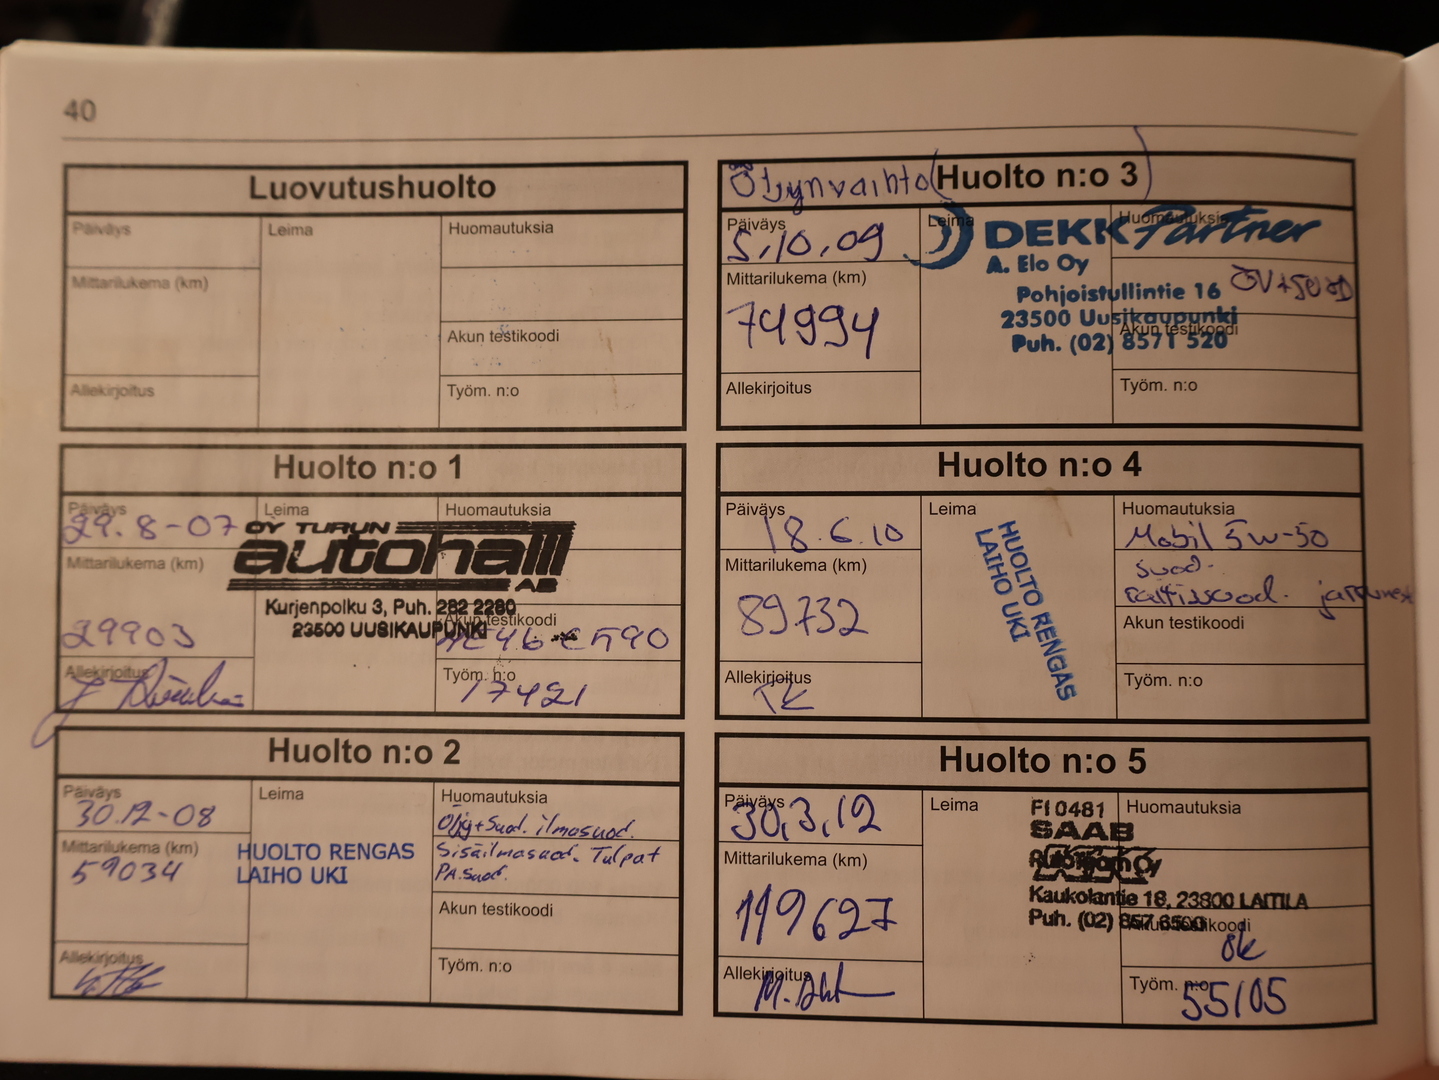 40
Luovutushuolto
Päiväys
Leima
Huomautuksia
Mittarilukema (km)
Akun testikoodi
Allekirjoitus
Työm. n:o
Huolto n:o 1
Päiväys
29.8-07
Leima
OY TURUN
autohalli
AB
Kurjenpolku 3, Puh. 282 2280
23500 UUSIKAUPUNKI
Huomautuksia
Mittarilukema (km)
29903
Akun testikoodi
Allekirjoitus
Työm. n:o
17421
Huolto n:o 2
Päiväys
30.12-08
Leima
HUOLTO RENGAS
LAIHO UKI
Huomautuksia
Öljy+Suod. ilmasuod.
Sisäilmasuod. Tulpat
PA.suod.
Mittarilukema (km)
59034
Akun testikoodi
Allekirjoitus
Työm. n:o
Öljynvaihto (Huolto n:o 3)
Päiväys
5,10,09
Leima
DEKK Partner
A. Elo Oy
Pohjoistullintie 16
23500 Uusikaupunki
Puh. (02) 8571 520
Huomautuksia
ÖV+SUOD
Mittarilukema (km)
74994
Akun testikoodi
Allekirjoitus
Työm. n:o
Huolto n:o 4
Päiväys
18.6.10
Leima
HUOLTO RENGAS
LAIHO UKI
Huomautuksia
Mobil 5w-50
suod.
raitissuod. jarrunest
Mittarilukema (km)
89732
Akun testikoodi
Allekirjoitus
TK
Työm. n:o
Huolto n:o 5
Päiväys
30,3,12
Leima
FI 0481
SAAB
Kaukolantie 18, 23800 LAITILA
Puh. (02) 857 6500
Huomautuksia
Mittarilukema (km)
119627
Akun testikoodi
ok
Allekirjoitus
Työm. n:o
55105